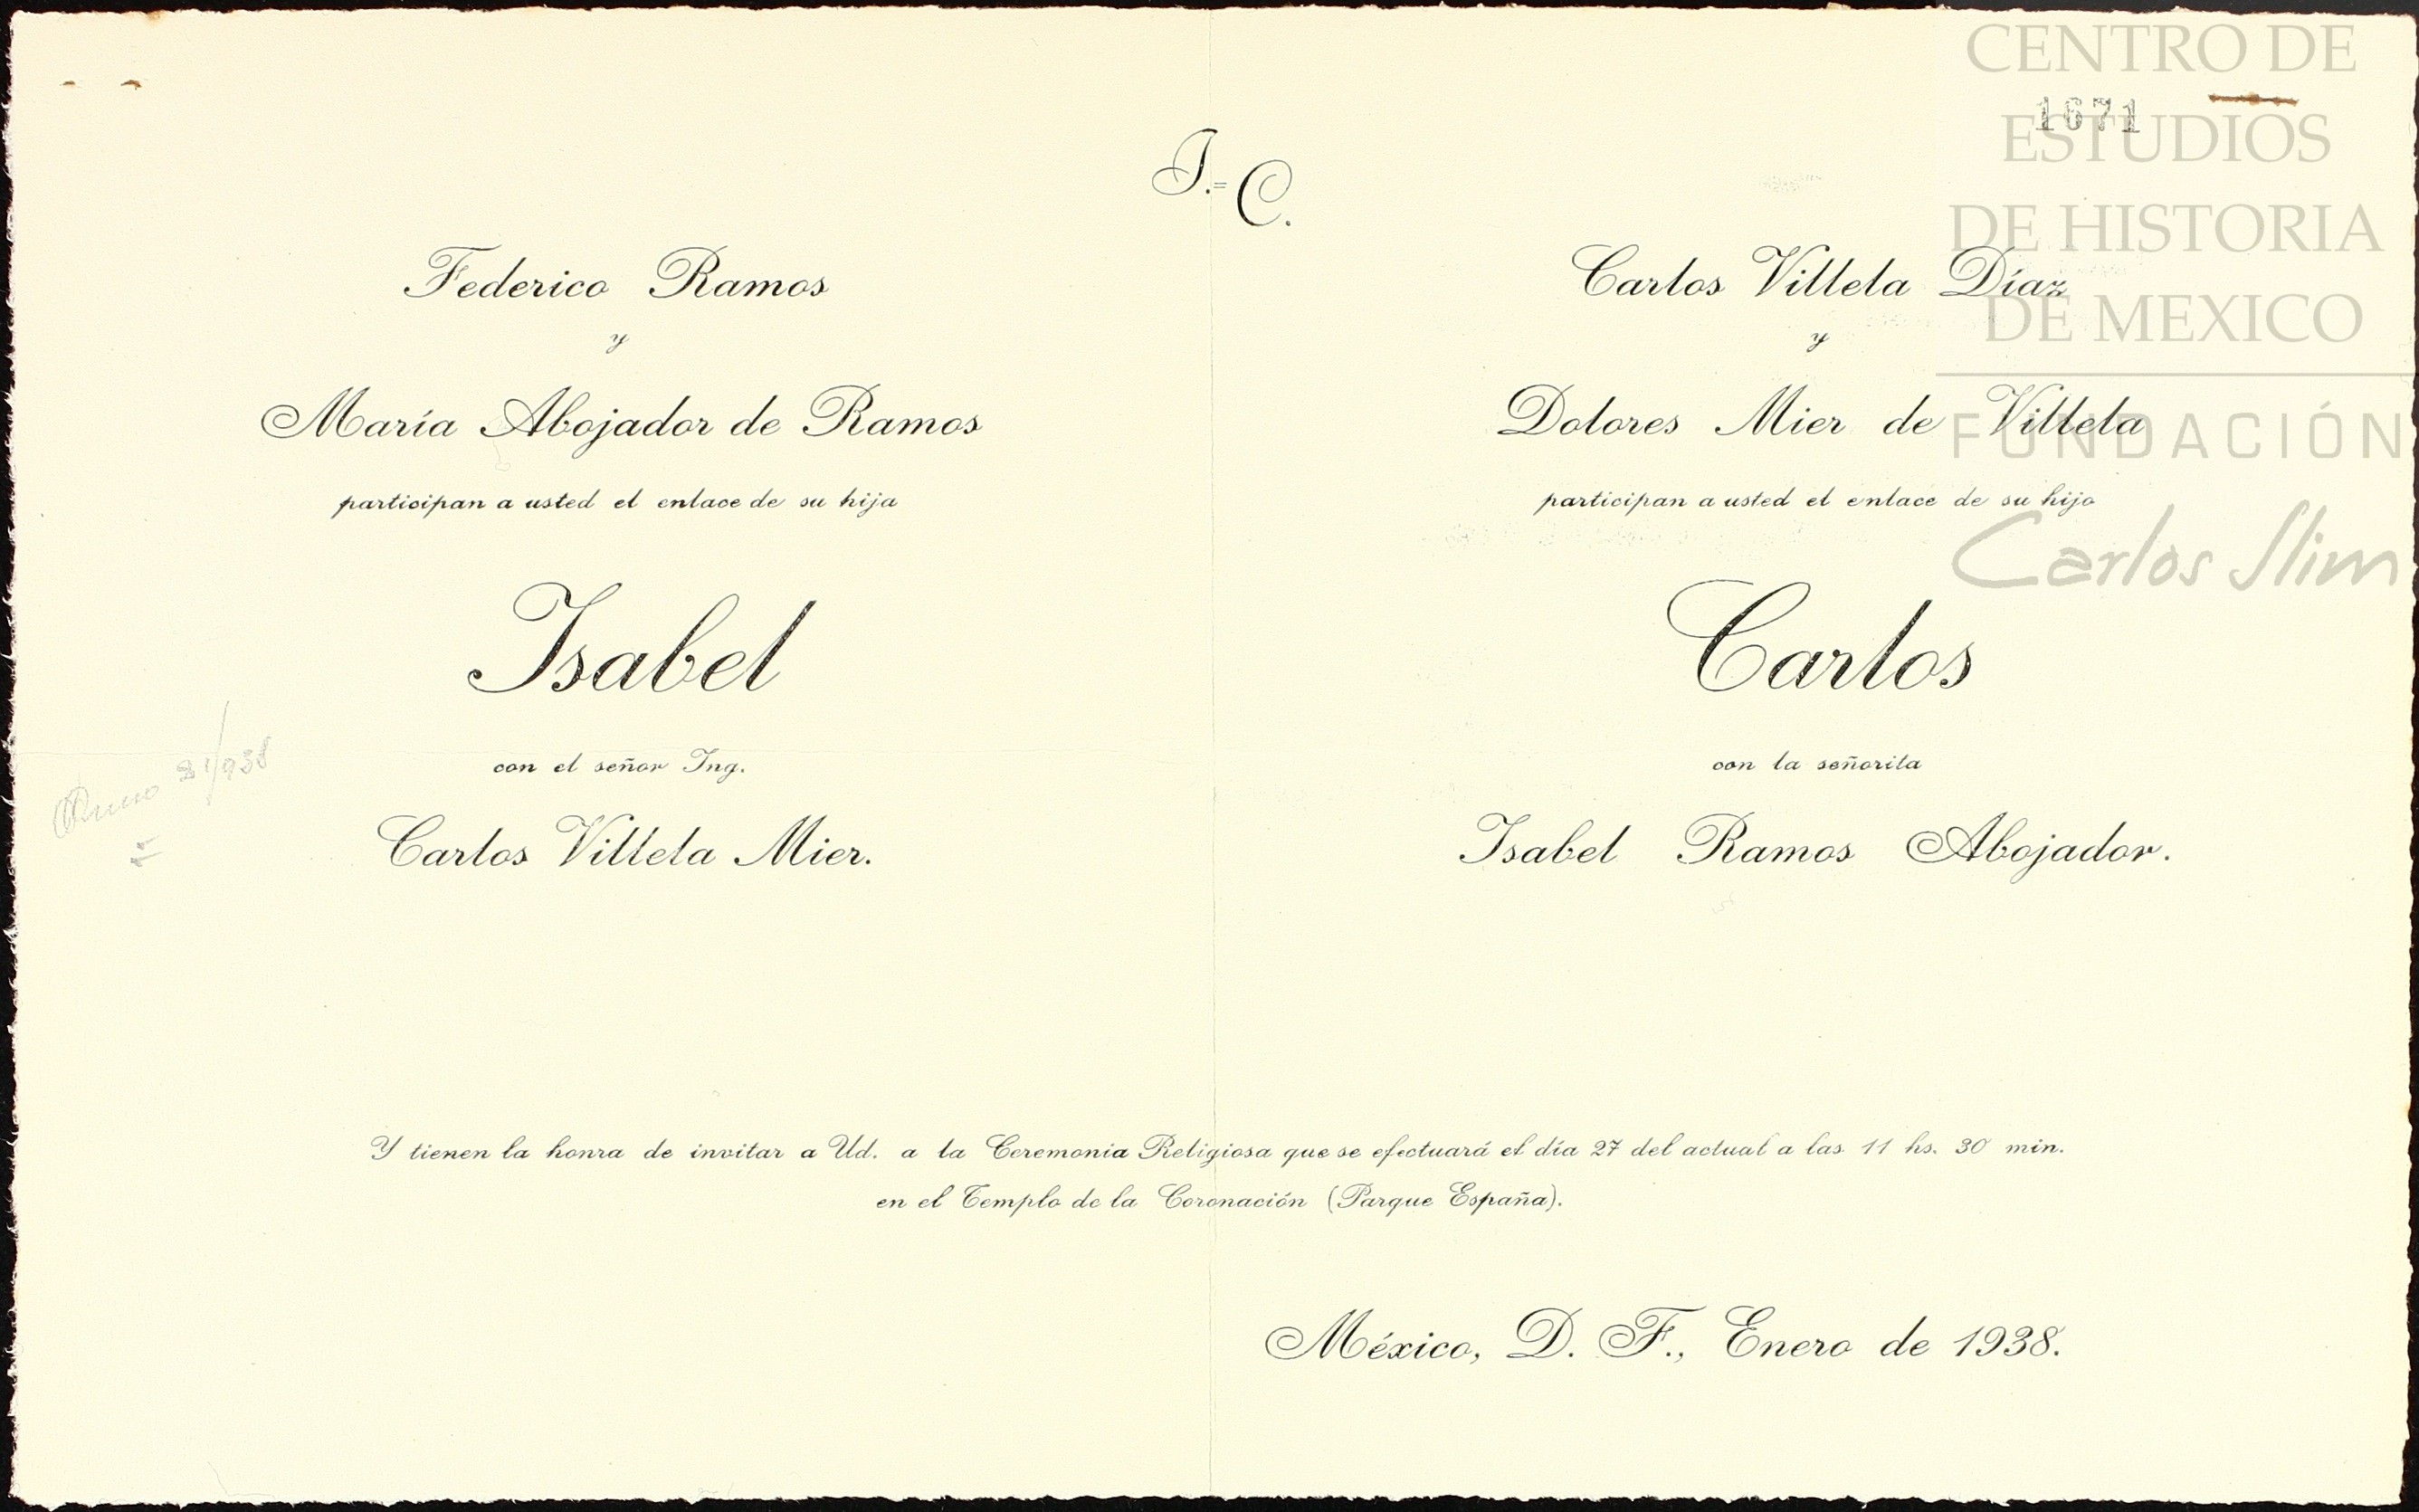 CENTRO DE
ESTUDIOS
DE HISTORIA
DE MEXICO
FUNDACIÓN
Carlos Slim
1671
I.=C.
Federico Ramos
y
María Abojador de Ramos
participan a usted el enlace de su hija
Isabel
con el señor Ing.
Carlos Villela Mier.
Carlos Villela Díaz
y
Dolores Mier de Villela
participan a usted el enlace de su hijo
Carlos
con la señorita
Isabel Ramos Abojador.
Y tienen la honra de invitar a Ud. a la Ceremonia Religiosa que se efectuará el día 27 del actual a las 11 hs. 30 min.
en el Templo de la Coronación (Parque España).
México, D. F., Enero de 1938.